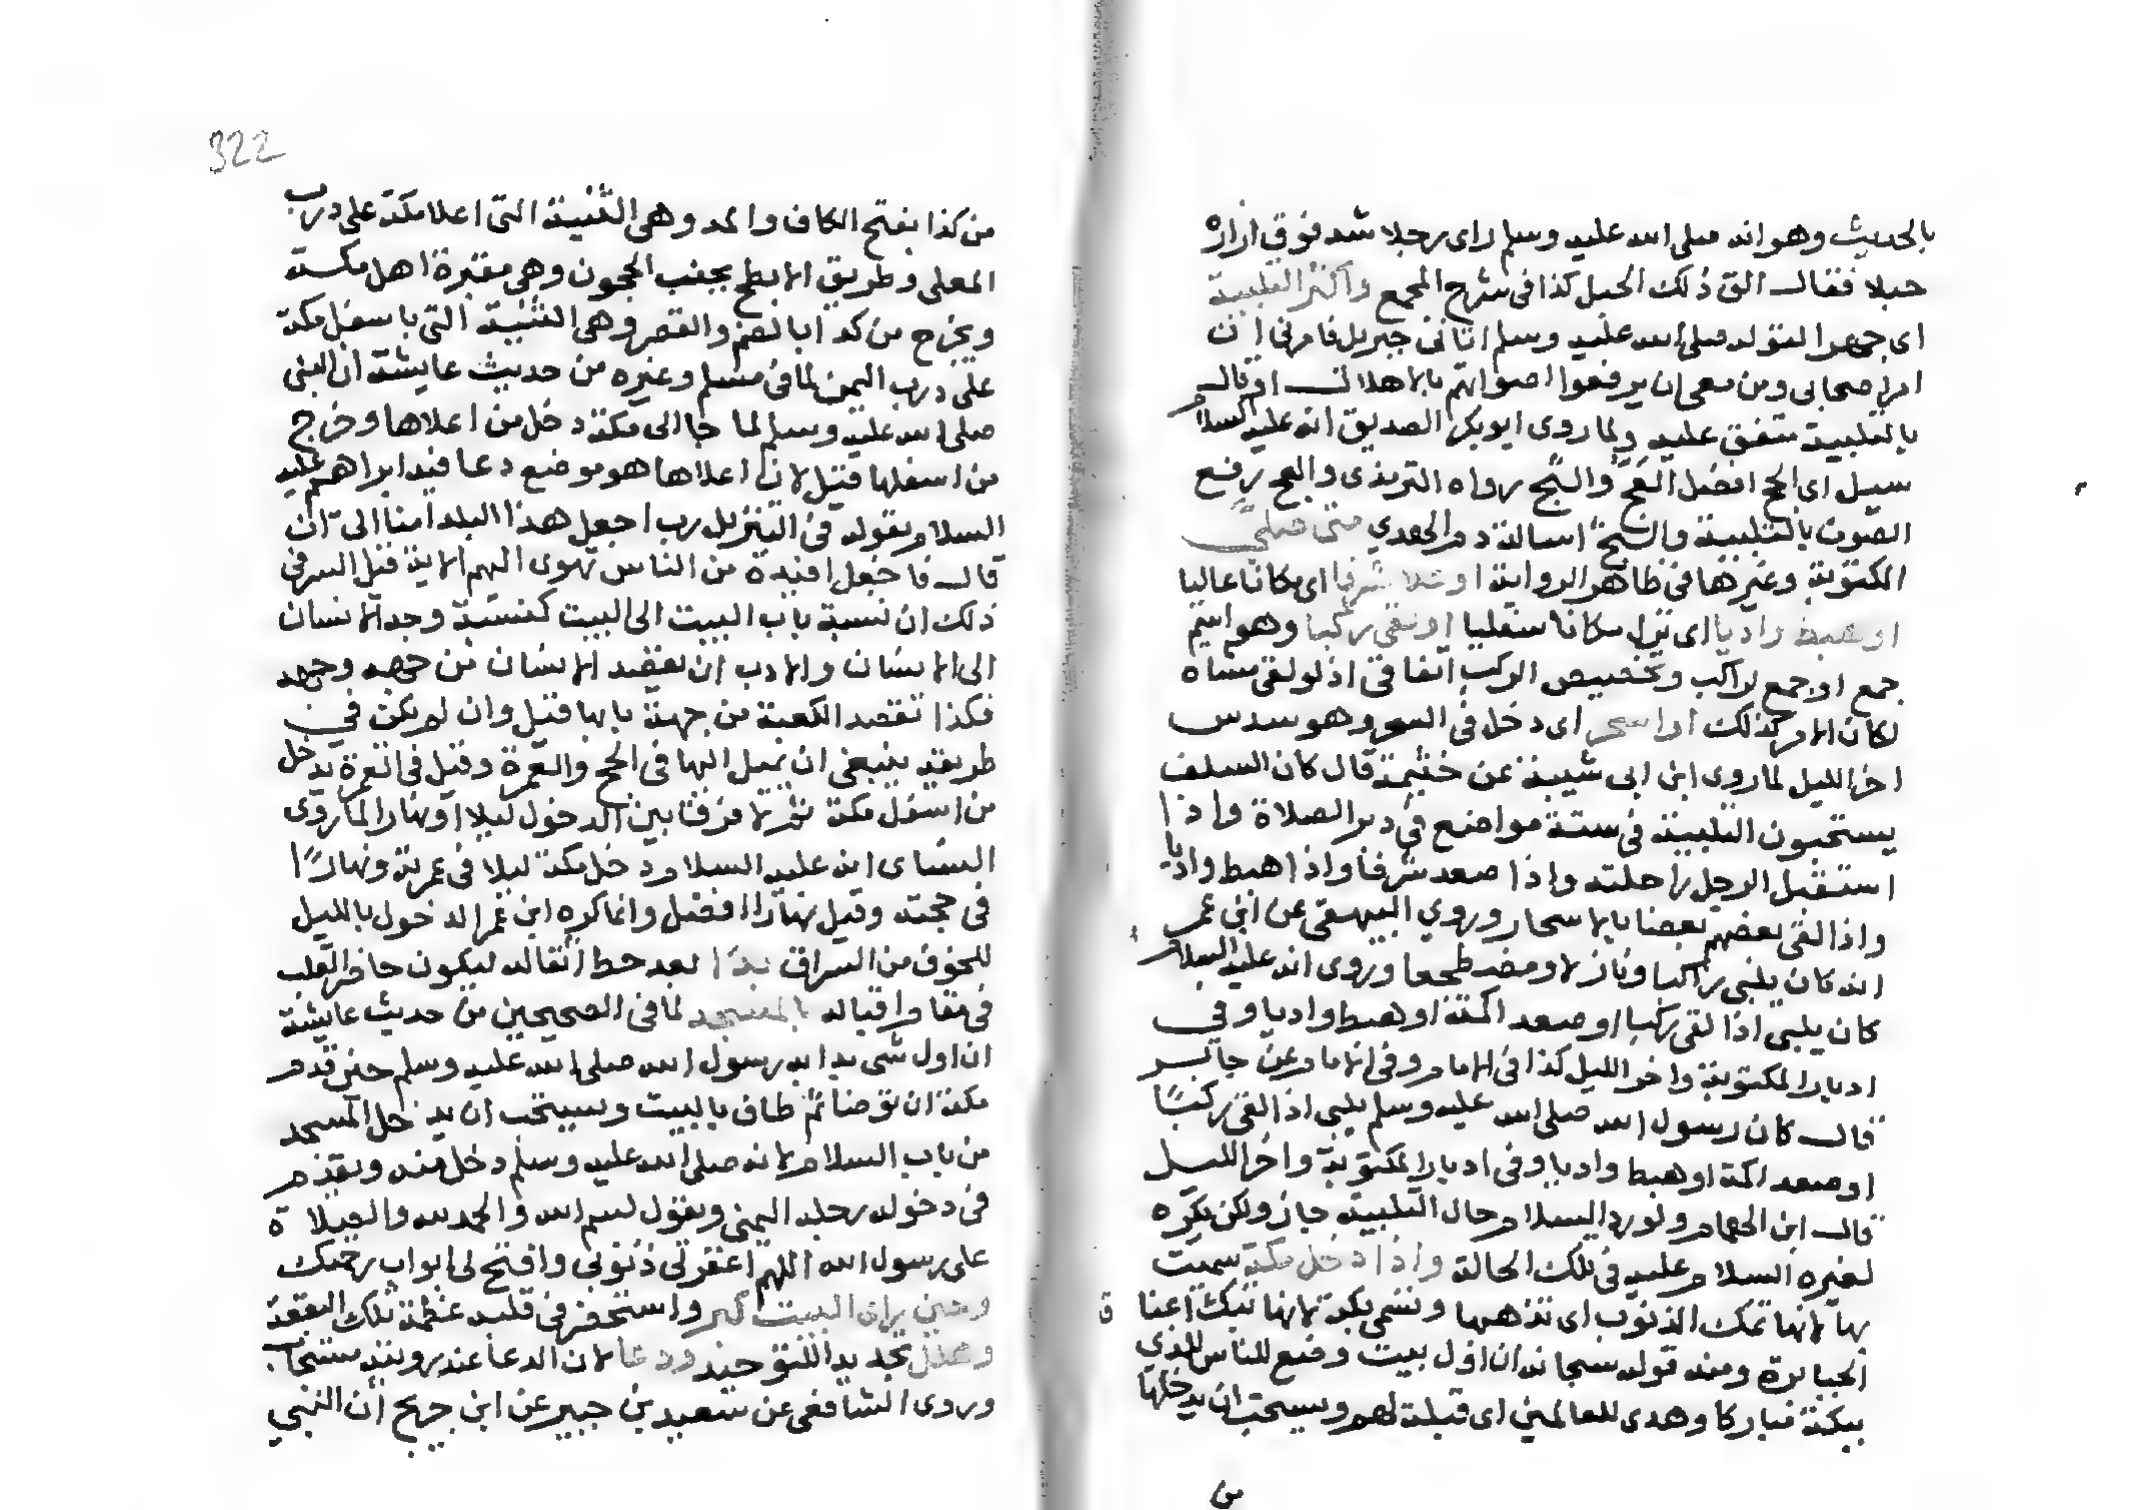 بالحديث وهو انه صلى الله عليه وسلم راى رجلا شد فوق ازاره
حبلا فقال الق ذلك الحبل كذا فى شرح المجمع واكثر التلبية
اى جهرا لقوله صلى الله عليه وسلم اتانى جبريل فامرنى ان
امر اصحابى ومن معى ان يرفعوا اصواتهم بالاهلال او قال
بالتلبية متفق عليه ولما روى ابو بكر الصديق انه عليه السلام
سيل اى الحج افضل العج والثج رواه الترمذى والعج رفع
الصوت بالتلبية والثج اسالة دم الهدي متى صلى
المكتوبة وغيرها فى ظاهر الرواية او علا شرفا اى مكانا عاليا
او هبط واديا اى نزل مكانا سفليا او لقى ركبا وهو اسم
جمع او جمع راكب وتخصيص الركب اتفاقى اذ لو لقى مشاه
لكان الامر كذلك او اسحر اى دخل فى السحر وهو سدس
اخر الليل لما روى ابن ابى شيبة عن خثيمة قال كان السلف
يستحبون التلبية فى ستة مواضع فى دبر الصلاة واذا
استقبل الرجل راحلته واذا صعد شرفا واذا هبط واديا
واذا لقى بعضهم بعضا بالاسحار وروي البيهقى عن ابن عمر
انه كان يلبى راكبا ونازلا ومضطجعا وروى انه عليه السلام
كان يلبى اذا لقى ركبا او صعد اكمة او هبط واديا وفي
ادبار المكتوبة واخر الليل كذا فى الامام وفى الامام عن جابر
قال كان رسول الله صلى الله عليه وسلم يلبى اذا لقى ركبًا
او صعد اكمة او هبط واديا وفى ادبار المكتوبة واخر الليل
قال ابن الهمام ولو رد السلام حال التلبية جاز ولكن يكره
لغيره السلام عليه فى تلك الحالة واذا دخل مكة سميت
بها لانها تمك الذنوب اى تذهبها وتسمى بكة لانها تبك اعناق
الجبابرة ومنه قوله سبحانه ان اول بيت وضع للناس للذي
ببكة مباركا وهدى للعالمين اى قبلة لهم ويستحب ان يدخلها
من
322
من كذا بفتح الكاف والمد وهى الثنية التى اعلا مكة على درب
المعلى وطريق الابطح بجنب الحجون وهى مقبرة اهل مكة
ويخرج من كدا بالضم والقصر وهى الثنية التى باسفل مكة
على درب اليمن لما فى مسلم وغيره من حديث عايشة ان النبى
صلى الله عليه وسلم لما جا الى مكة دخل من اعلاها وخرج
من اسفلها قيل لان اعلاها هو موضع دعا فيه ابراهيم عليه
السلام بقوله فى التنزيل رب اجعل هذا البلد امنا الى ان
قال فاجعل افيدة من الناس تهوى اليهم الاية قيل السر فى
ذلك ان نسبة باب البيت الى البيت كنسبة وجه الانسان
الى الانسان والادب ان يقصد الانسان من جهة وجهه
فكذا تقصد الكعبة من جهة بابها قيل وان لم يكن في
طريقه ينبغى ان يميل اليها فى الحج والعمرة وقيل فى العمرة يدخل
من اسفل مكة ثم لا فرق بين الدخول ليلا او نهارا لما روى
النساى انه عليه السلام دخل مكة ليلا فى عمرته ونهارًا
فى حجته وقيل نهارا افضل وانما كره ابن عمر الدخول بالليل
للخوف من السراق بدا بعد حط اثقاله ليكون حاضر القلب
فى مقام اقباله بالمسجد لما فى الصحيحين من حديث عايشة
ان اول شى بدا به رسول الله صلى الله عليه وسلم حين قدم
مكة ان توضا ثم طاف بالبيت ويستحب ان يدخل المسجد
من باب السلام لانه صلى الله عليه وسلم دخل منه ويقدم
فى دخوله رجله اليمنى ويقول بسم الله والحمد لله والصلاة
على رسول الله اللهم اغفر لى ذنوبى وافتح لى ابواب رحمتك
وحين راى البيت كبر واستحضر فى قلبه عظمة تلك البقعة
وهلل تجديدا للتوحيد ودعا لان الدعا عند رويته مستجاب
وروى الشافعى عن سعيد بن جبير عن ابن جريج ان النبي